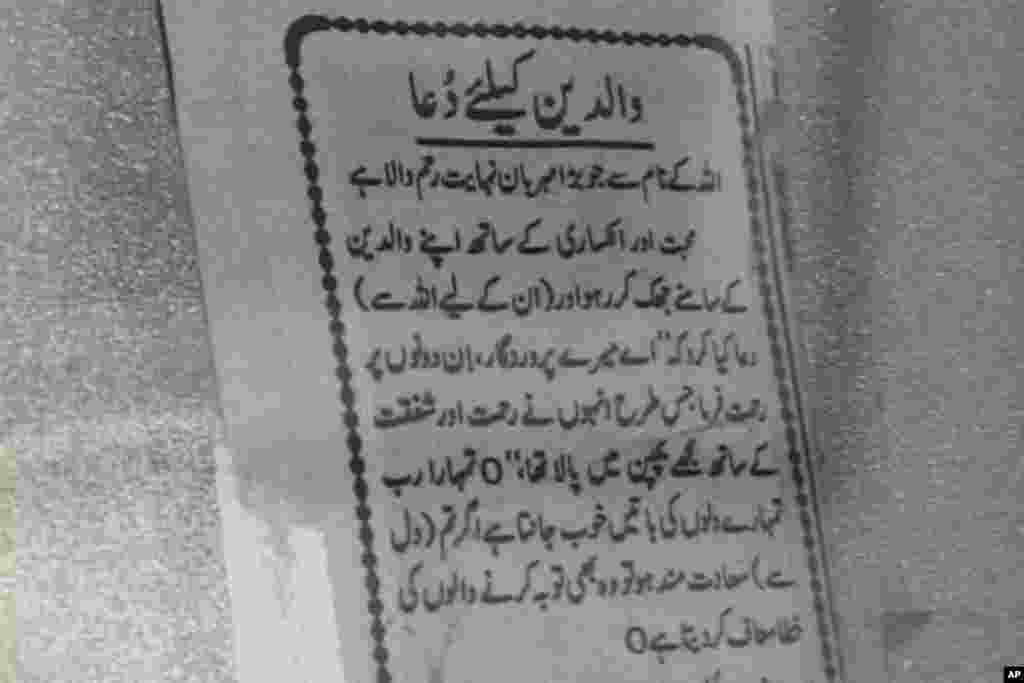 والدین کیلئے دُعا
اللہ کے نام سے جو بڑا مہربان نہایت رحم والا ہے
محبت اور انکساری کے ساتھ اپنے والدین
کے سامنے جھک کر رہو اور (ان کے لیے اللہ سے)
دعا کیا کرو کہ "اے میرے پروردگار، اِن دونوں پر
رحمت فرما جس طرح انہوں نے رحمت اور شفقت
کے ساتھ مجھے بچپن میں پالا تھا،" O تمہارا رب
تمہارے دلوں کی باتیں خوب جانتا ہے اگر تم (دل
سے) سعادت مند ہو تو وہ بھی توبہ کرنے والوں کی
خطا معاف کر دیتا ہے O
AP